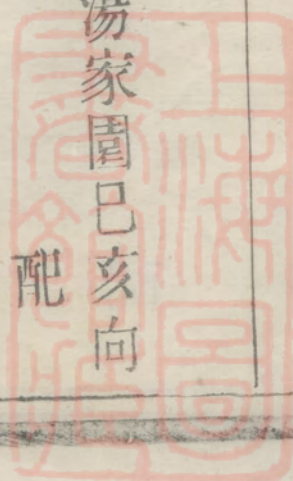 湯家園巳亥向
配